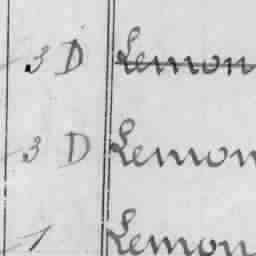 3 D Lemon
3 D Lemon
1 Lemon